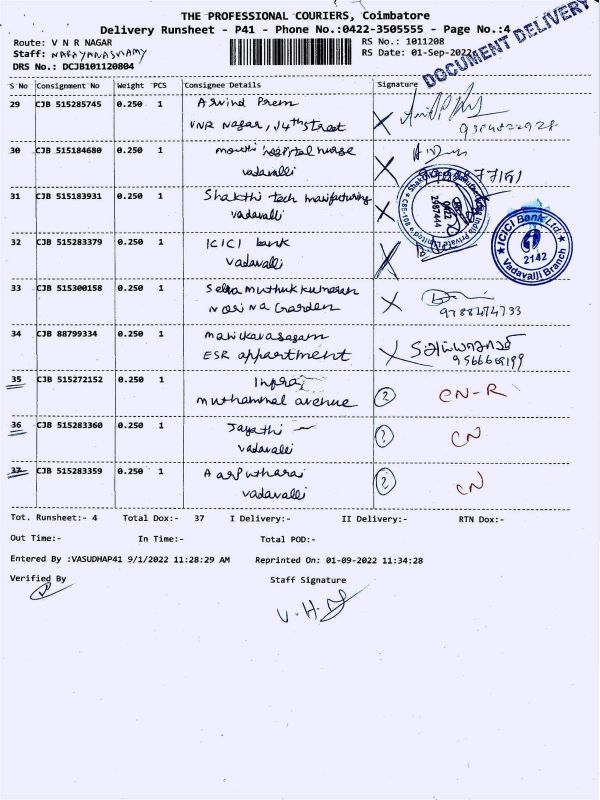 THE PROFESSIONAL COURIERS, Coimbatore
Delivery Runsheet - P41 - Phone No.:0422-3505555 - Page No.:4
Route: V N R NAGAR
RS No.: 1011208
Staff: NARAYANASWAMY
RS Date: 01-Sep-2022
DRS No.: DCJB101120804
DOCUMENT DELIVERY
S No Consignment No Weight PCS Consignee Details Signature
29 CJB 515285745 0.250 1 Arvind Prem
VNR Nagar, 14th Street
30 CJB 515184680 0.250 1
vadavalli
31 CJB 515183931 0.250 1 Shakthi tech manifacturing
vadavalli
32 CJB 515283379 0.250 1 ICICI bank
vadavalli
ICICI Bank Ltd
2142
Vadavalli Branch
33 CJB 515300158 0.250 1 Selva muthukkumaran
Garden
9788474733
34 CJB 88799334 0.250 1 manickavasagam
ESR appartment
9566609199
35 CJB 515272152 0.250 1 Infra
muthammal avenue
? CN-R
36 CJB 515283360 0.250 1 Jayathi
vadavalli
? CN
37 CJB 515283359 0.250 1
vadavalli
? CN
Tot. Runsheet:- 4 Total Dox:- 37 I Delivery:- II Delivery:- RTN Dox:-
Out Time:- In Time:- Total POD:-
Entered By :VASUDHAP41 9/1/2022 11:28:29 AM Reprinted On: 01-09-2022 11:34:28
Verified By Staff Signature